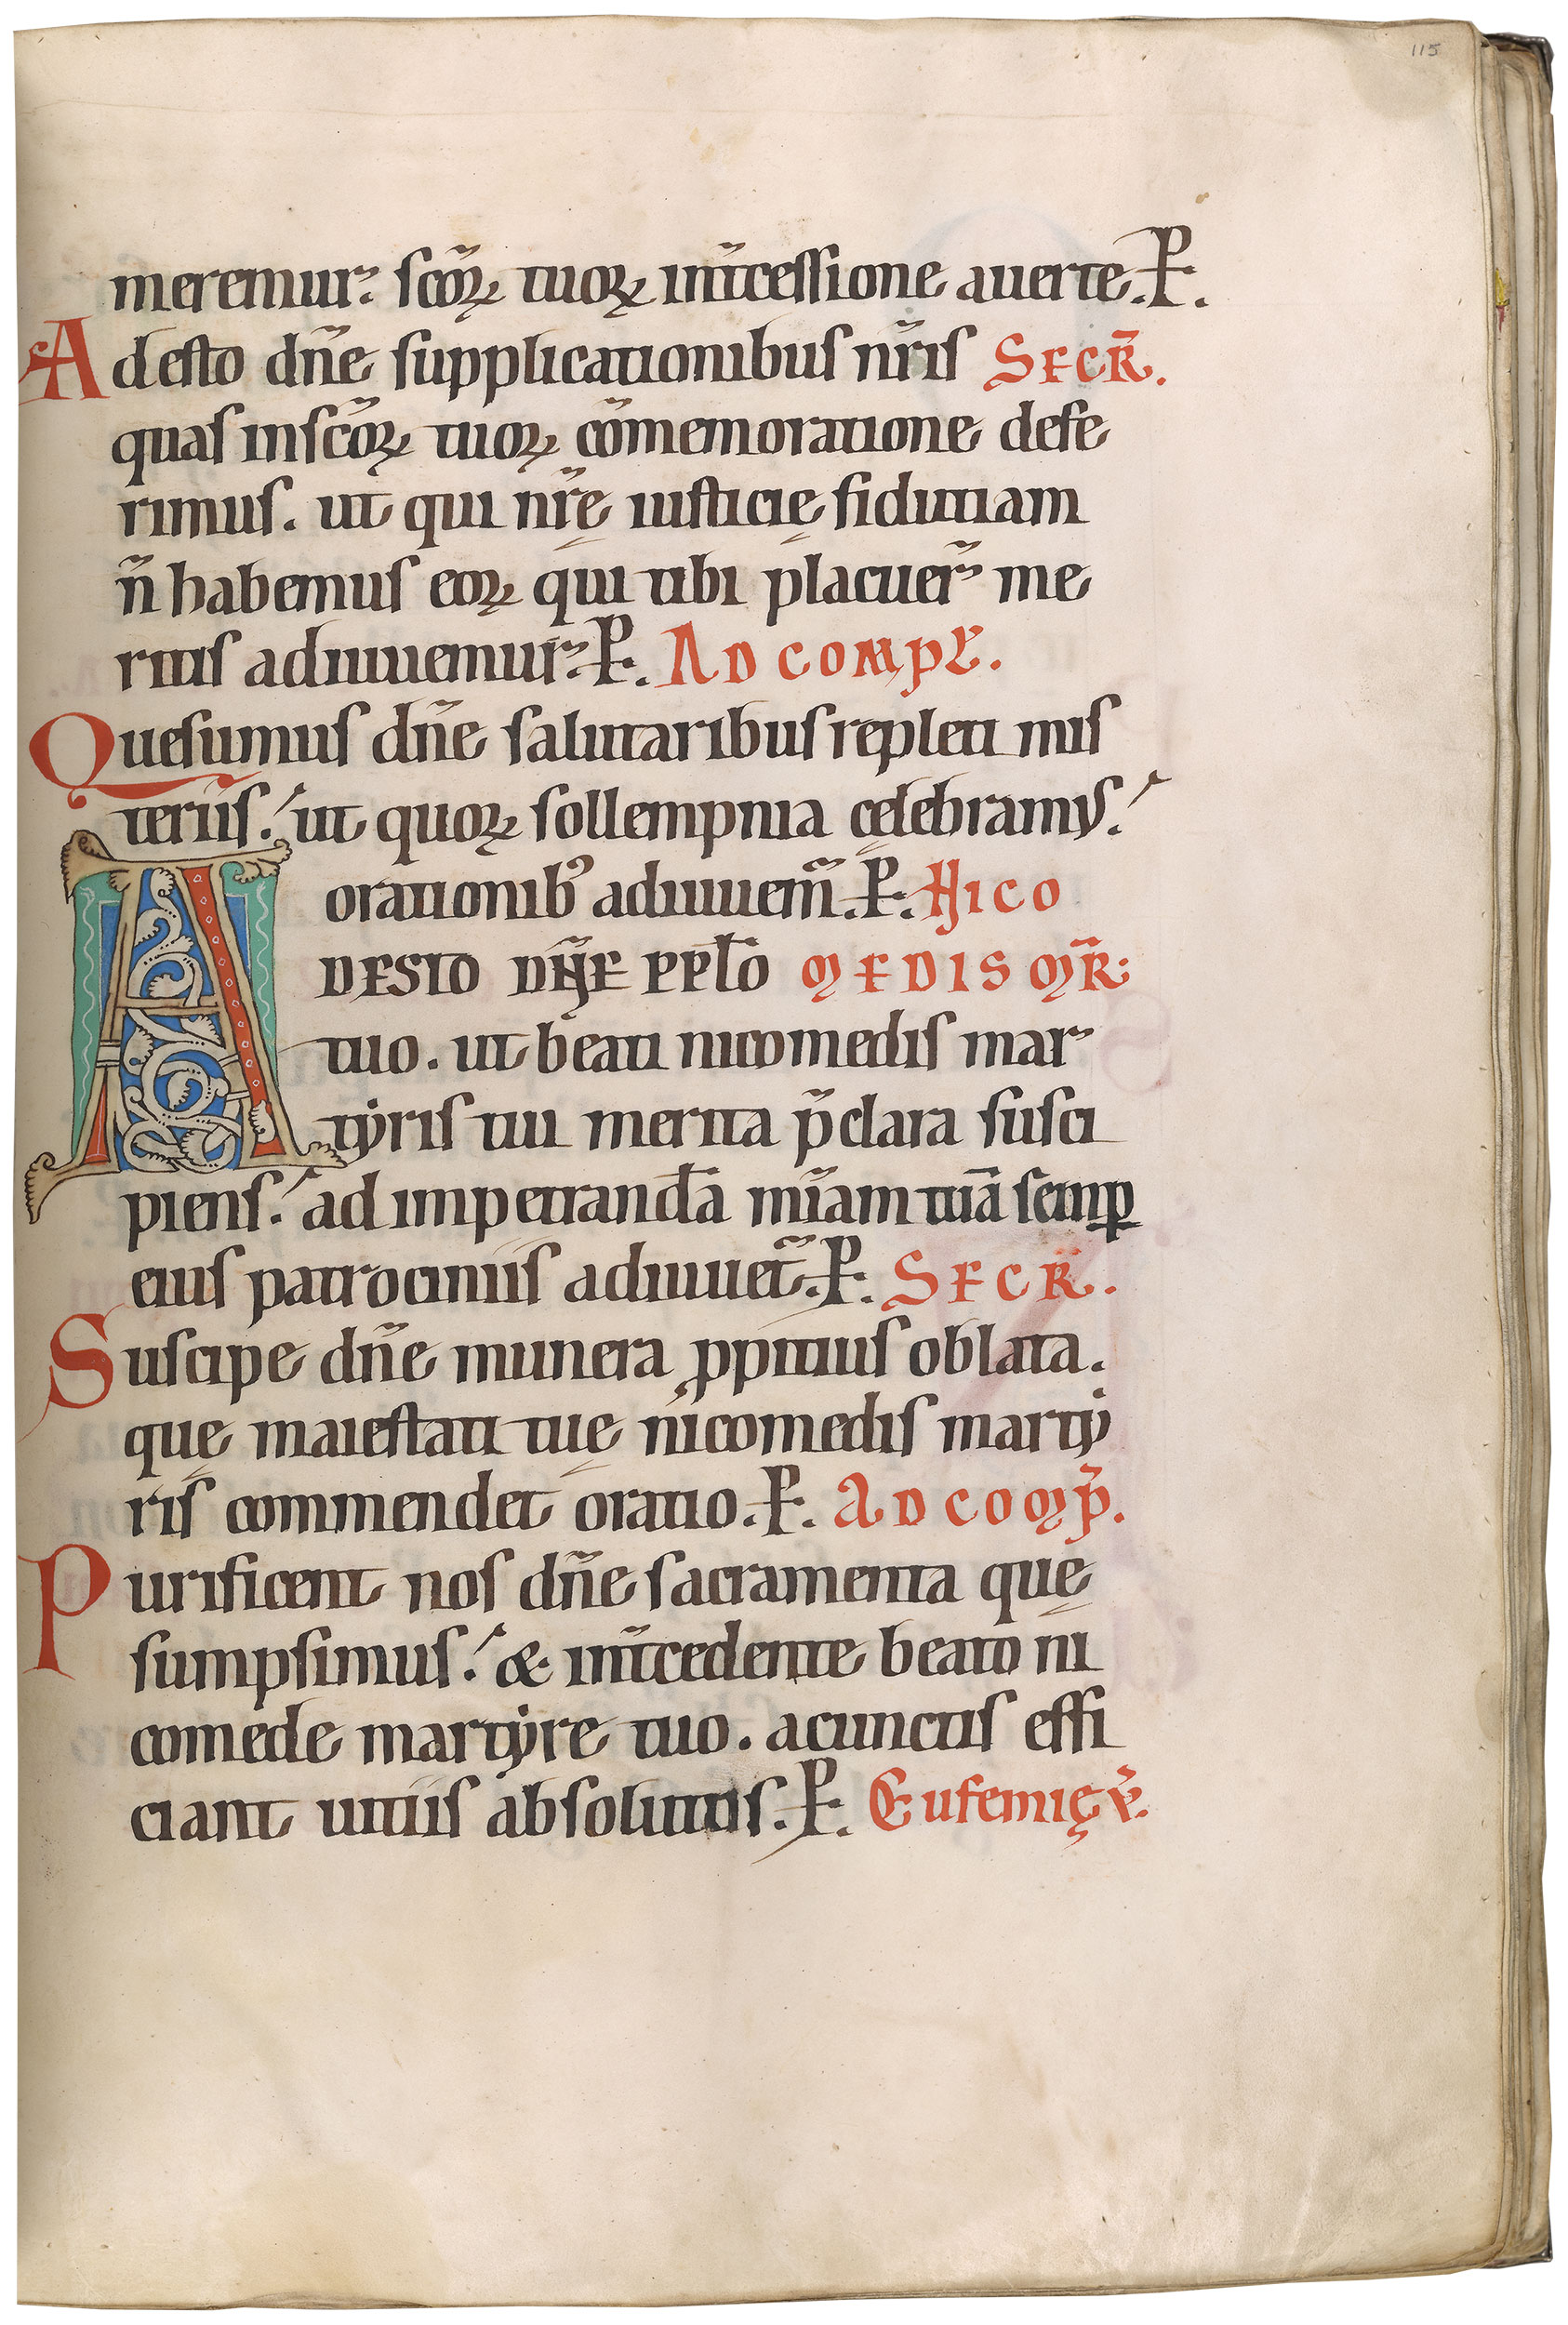 115
meremur᷑ scõꝝ tuoꝝ int̃cessione auerte. P.
Adesto dñe supplicationibus nr̃is SECR̃.
quas inscõꝝ tuoꝝ cõmemoratione defe
rimus. ut qui nr̃ę iusticię fidutiam
ñ habemus eoꝝ qui tibi placuer᷑ me
ritis adiuuemur᷑. P. AD COMPL̃.
Quesumus dñe salutaribus repleti mis
teriis. ut quoꝝ sollempnia cęlebramus.
orationib' adiuuem̃. P. NICO
ADESTO DÑE PPL̃O MEDIS MR̃:
tuo. ut beati nicomedis mar
tyris tui merita p̃clara susci
piens. ad impetrandã mĩam tuã semꝑ
eius patrociniis adiuuet᷑. P. SECR̃.
Suscipe dñe munera ꝓpitius oblata.
quę maiestati tuę nicomedis marty
ris commendet oratio. P. AD COMP̃.
Purificent nos dñe sacramenta quę
sumpsimus. & int̃cedente beato ni
comede martyre tuo. acunctis effi
ciant uitiis absolutos. P. Eufemię ṽ.